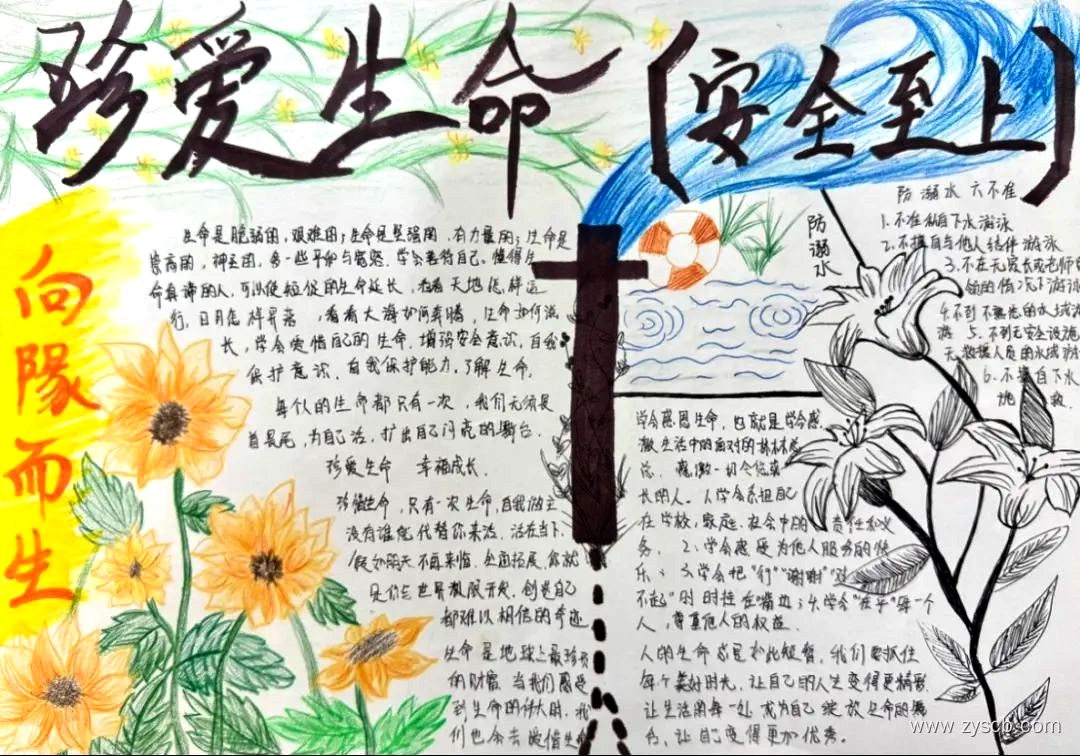 珍爱生命(安全至上)
向陽而生
生命是脆弱的,艰难的;生命是坚强的,有力量的;生命是
崇高的,神圣的,多一些平和与宽容,学会善待自己。懂得生
命真谛的人,可以使短促的生命延长,看看天地怎样运
行,日月怎样升落,看看大海如何奔腾,生命如何成
长,学会爱惜自己的生命,增强安全意识,自我
保护意识,自我保护能力,了解生命。
每个人的生命都只有一次,我们无须畏
首畏尾,为自己活,扩出自己闪亮的舞台。
珍爱生命 幸福成长。
珍惜生命,只有一次生命,自我做主
没有谁能代替你来活,活在当下,
假如明天不再来临,全面拓展,你就
世界极限开战,创造自己
都难以相信的奇迹
生命是地球上最珍贵
的财富,当我们感受
到生命的伟大时,我
们也会去爱惜生命
防溺水
防溺水六不准
1.不准私自下水游泳
2.不擅自与他人结伴游泳
3.不在无家长或老师带
领的情况下游泳
4.不到不熟悉的水域游
游 5.不到无安全设施,
无救援人员的水域游泳
6.不擅自下水
施救
学会感恩生命,也就是学会感
激生活中的面对的林林总
总,感激一切令你成
长的人。1.学会承担自己
在学校,家庭,社会中的责任和义
务。2.学会感受为他人服务的快
乐。3.学会把"行""谢谢""对
不起"时时挂在嘴边;4.学会"在乎"每一个
人,尊重他人的权益。
人的生命就是如此短暂,我们要抓住
每个美好时光,让自己的人生变得更精彩,
让生活的每一处成为自己绽放生命的舞
台,让自己变得更加优秀。
www.zyscb.com